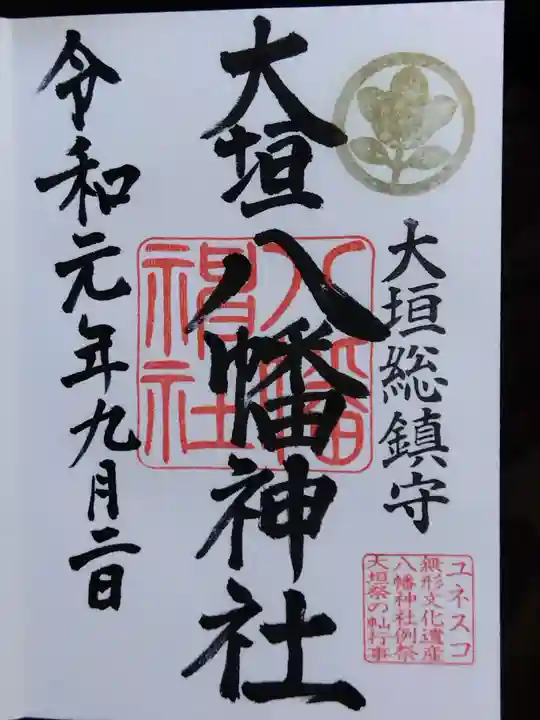 大垣総鎮守
ユネスコ
無形文化遺産
八幡神社例祭
大垣祭の軕行事
大垣八幡神社
八幡
神社
令和元年九月二日